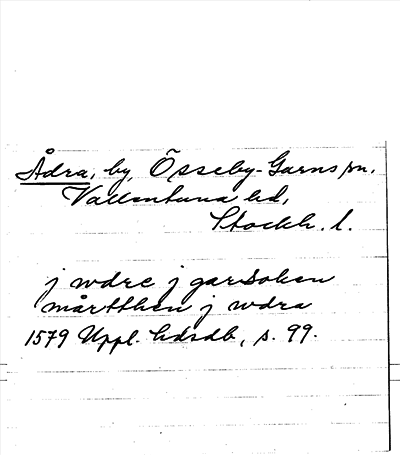 Ådra, by, Össeby-Garns sn.
Vallentuna hd,
Stockh. l.
j wdre j garsoken
mårtthen j wdra
1579 Uppl. hdsdb, s. 99.